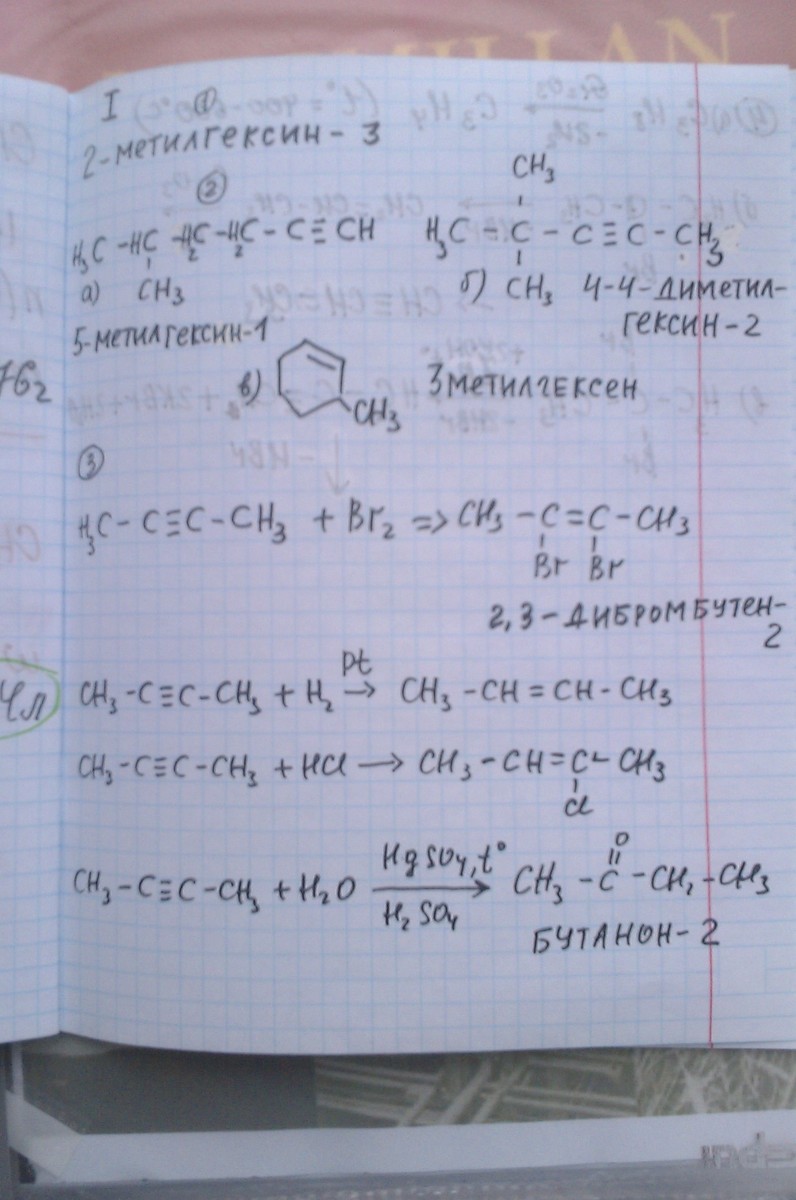 I ①
2-метилгексин-3
②
H₃C-HC-H₂C-H₂C-C≡CH
CH₃
а)
5-метилгексин-1
CH₃
H₃C-C-C≡C-CH₃
б) CH₃ 4-4-диметил-
гексин-2
в)
CH₃
3метилгексен
③
H₃C-C≡C-CH₃ + Br₂ => CH₃-C=C-CH₃
Br Br
2,3-дибромбутен-
2
4л
CH₃-C≡C-CH₃ + H₂ →
Pt
CH₃-CH=CH-CH₃
CH₃-C≡C-CH₃ + HCl → CH₃-CH=C-CH₃
Cl
CH₃-C≡C-CH₃ + H₂O
HgSO₄, t°
H₂SO₄
O
CH₃-C-CH₂-CH₃
Бутанон-2